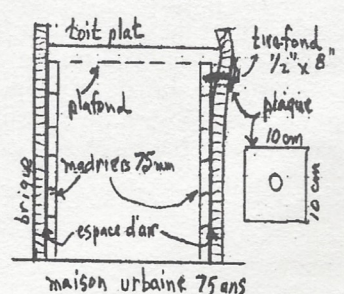 toit plat
tirefond
1/2" x 8"
plafond
plaque
10 cm
10 cm
madriers 75 mm
brique
espace d'air
maison urbaine 75 ans